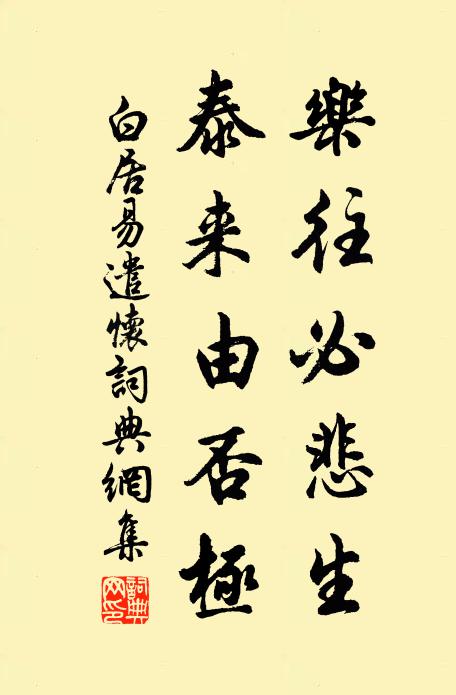 樂往必悲生
泰来由否極
白居易遣懷詞典網集
詞典网印